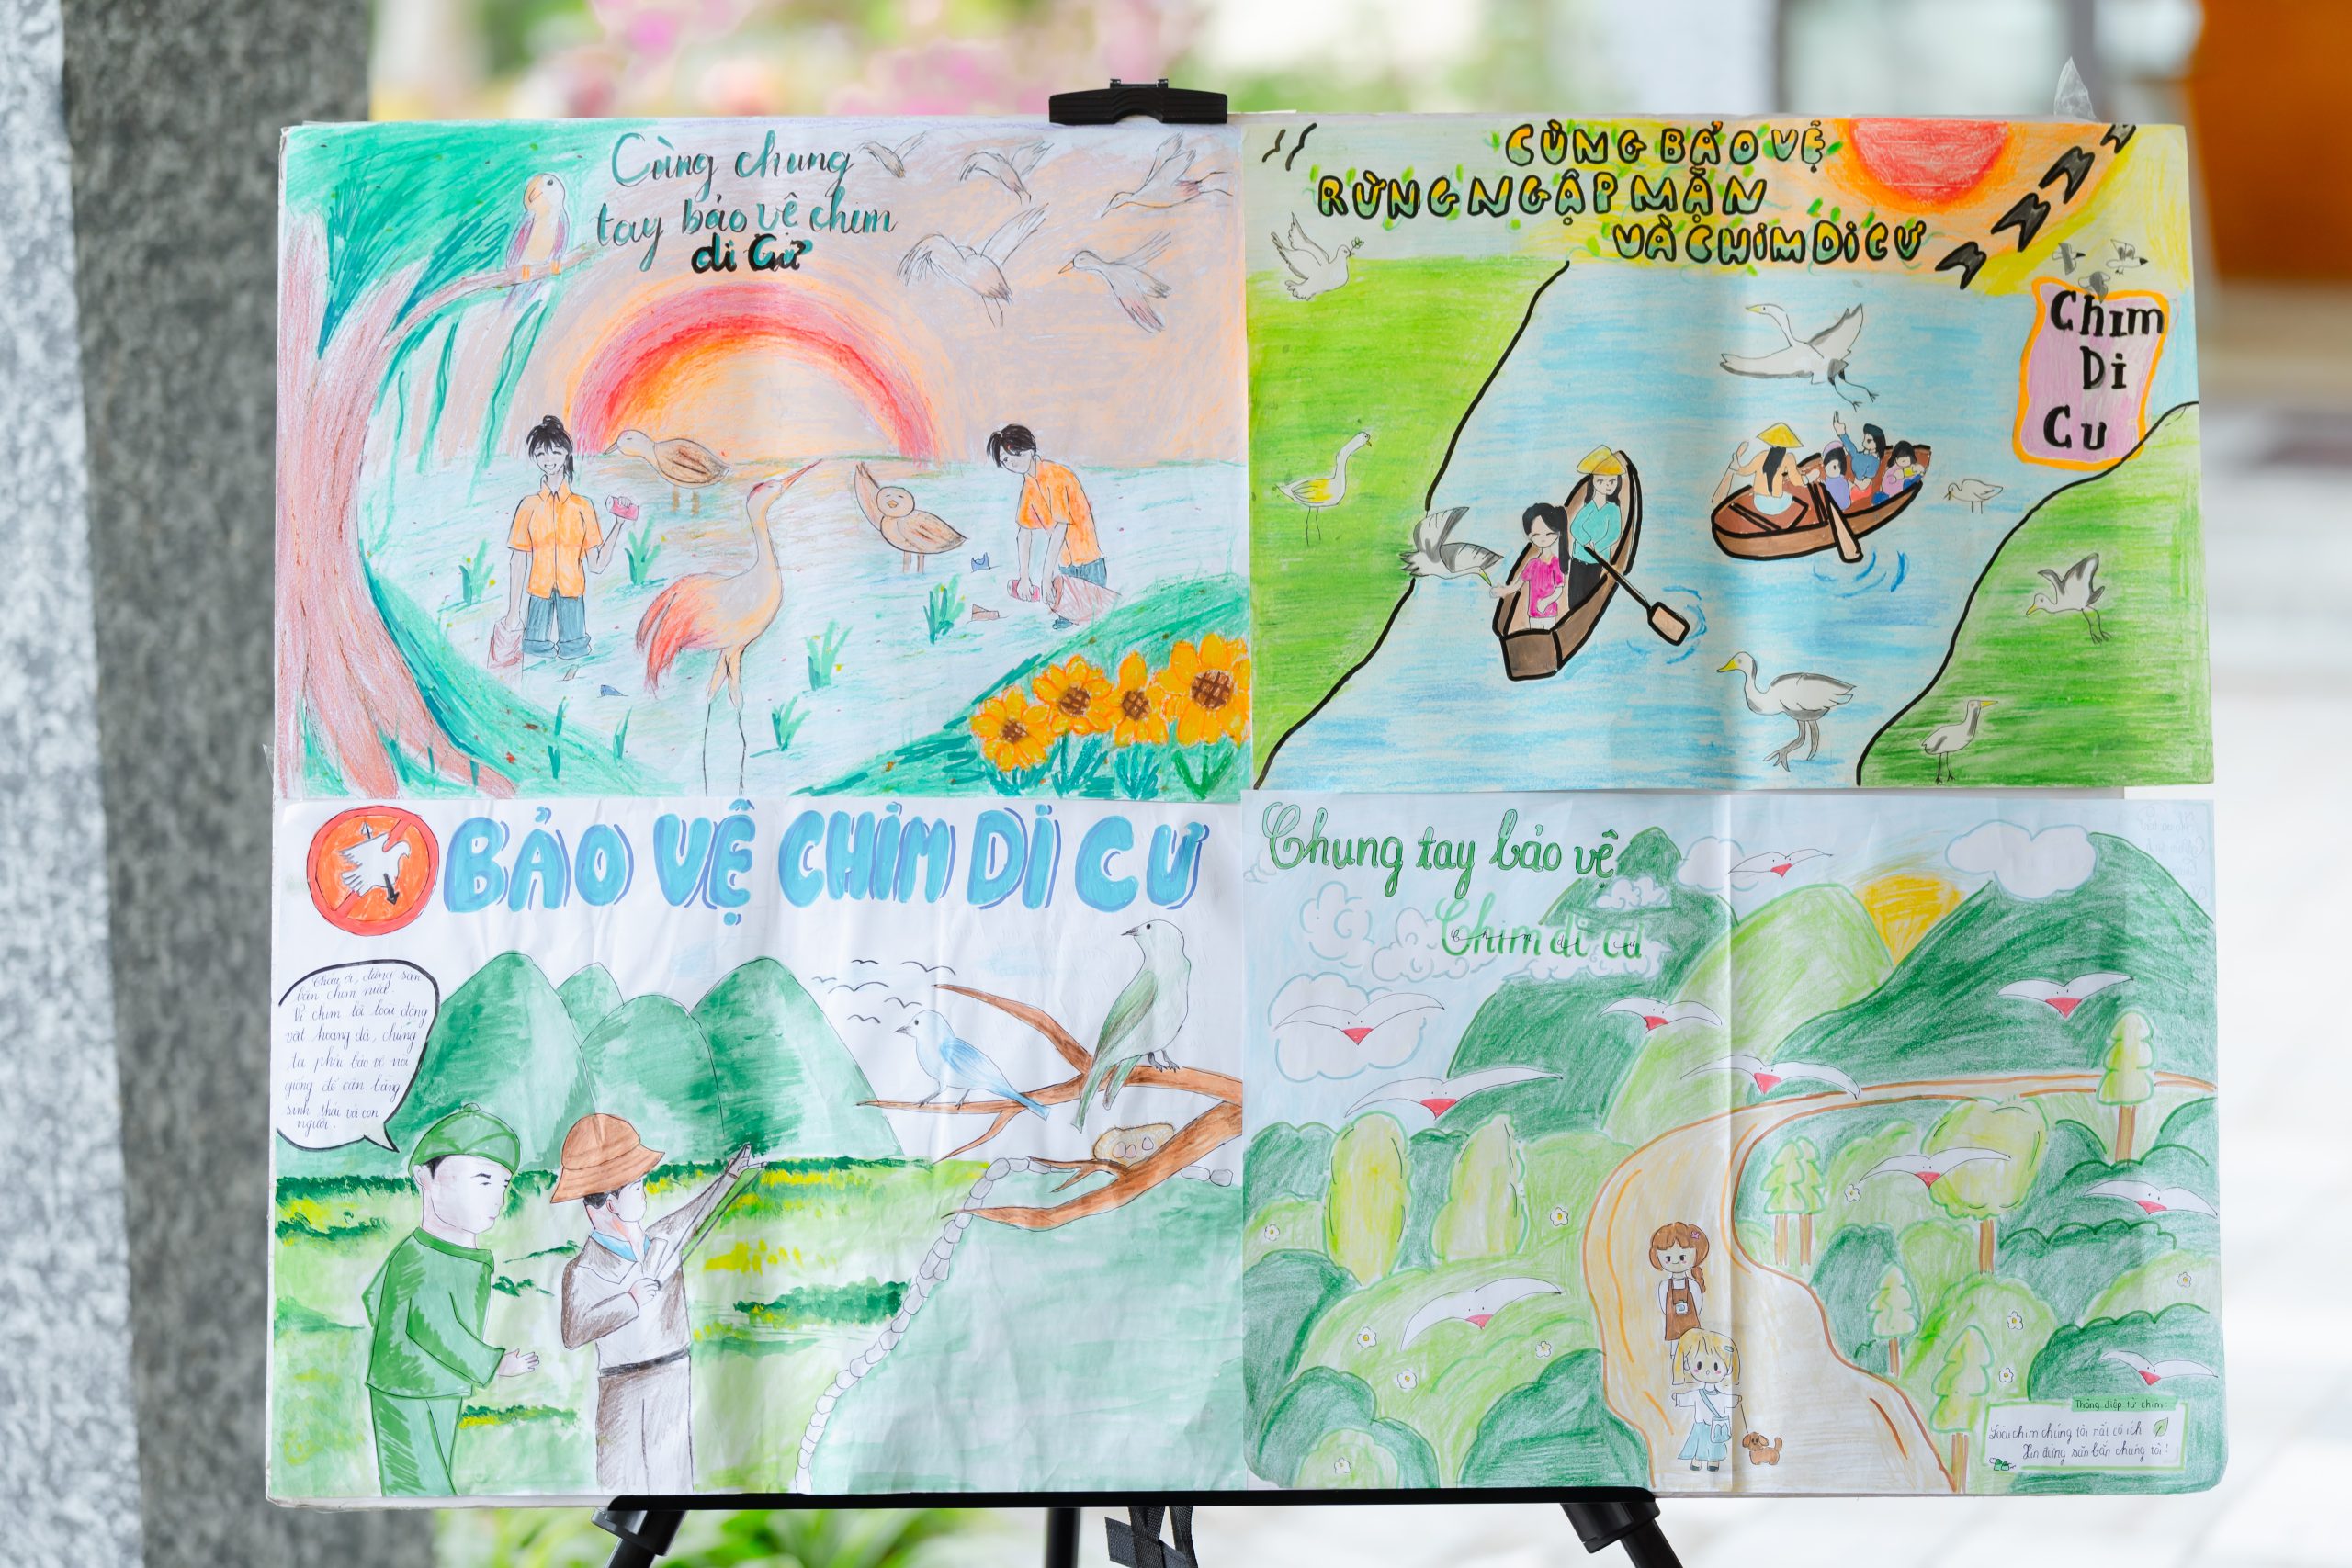 Cùng chung
tay bảo vê chim
di Cư
CÙNG BẢO VỆ
RỪNG NGẬP MẶN
VÀ CHIM DI CƯ
Chim
Di
Cu
BẢO VỆ CHIM DI CƯ
Cháu ơi, đừng săn
bắn chim nữa.
Vì chim là loài động
vật hoang dã, chúng
ta phải bảo vệ nòi
giống để cân bằng
sinh thái và con
người.
Chung tay bảo vệ
Chim di cư
Thông điệp từ chim:
Loài chim chúng tôi rất có ích
Xin đừng săn bắn chúng tôi!